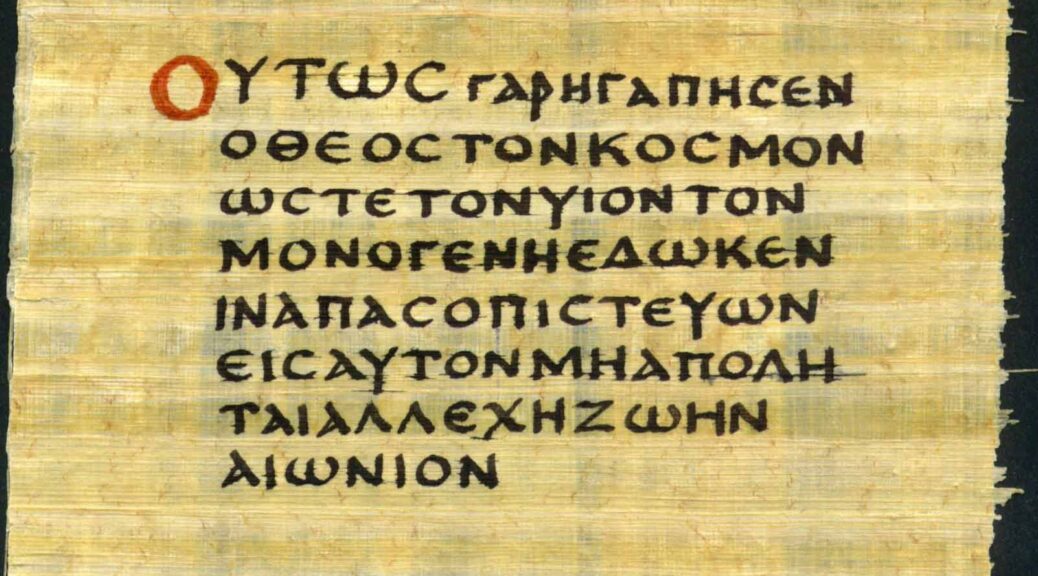 ΟΥΤΩϹ ΓΑΡΗΓΑΠΗϹΕΝ
ΟΘΕΟϹΤΟΝΚΟϹΜΟΝ
ΩϹΤΕΤΟΝΥΙΟΝΤΟΝ
ΜΟΝΟΓΕΝΗΕΔΩΚΕΝ
ΙΝΑΠΑϹΟΠΙϹΤΕΥΩΝ
ΕΙϹΑΥΤΟΝΜΗΑΠΟΛΗ
ΤΑΙΑΛΛΕΧΗΖΩΗΝ
ΑΙΩΝΙΟΝ